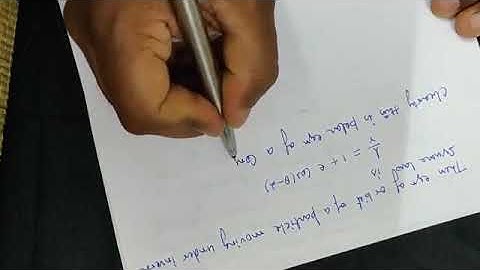 Then eqn of orbit of a particle moving under inver
square law is
l/r = 1 + e cos(θ-α)
Clearly this is polar eqn of a Con